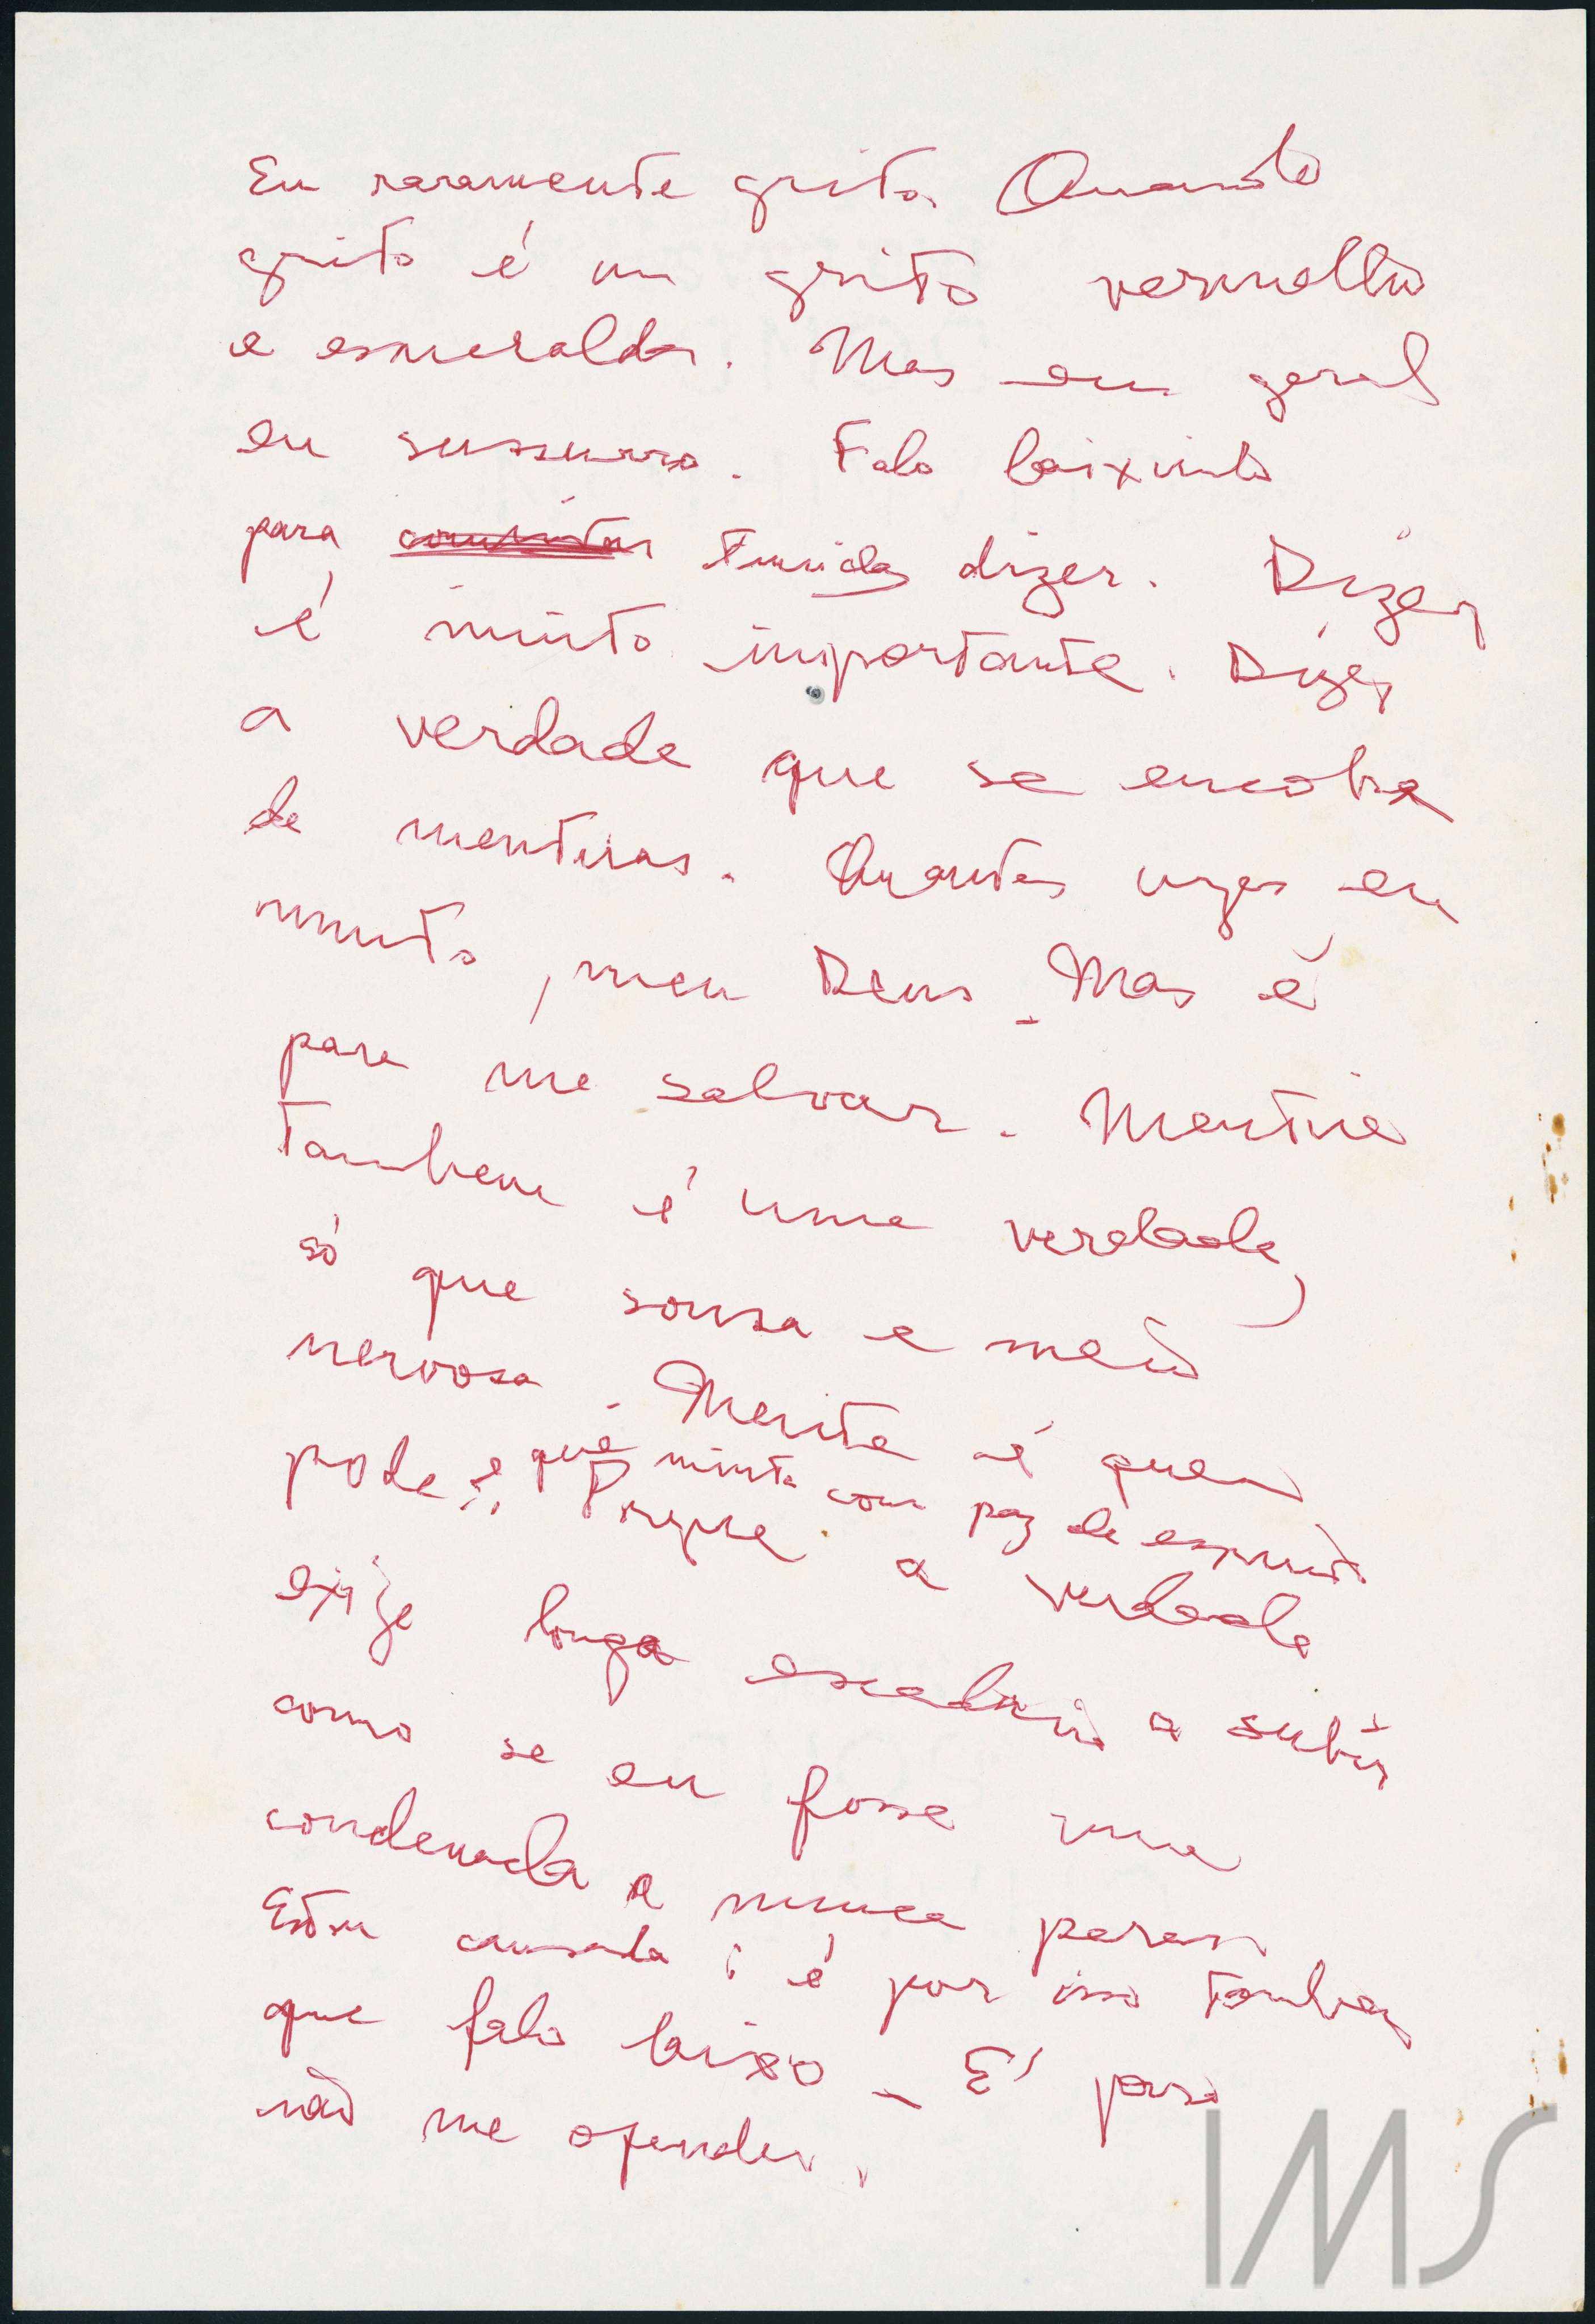 Eu raramente grito. Quando
grito é um grito vermelho
e esmeralda. Mas em geral
eu sussurro. Falo baixinho
para timida dizer. Dizer
é muito importante. Dizer
a verdade que se encobre
de mentiras. Quantas vezes eu
minto, meu Deus. Mas é
para me salvar. Mentira
tambem é uma verdade,
só que sonsa e meio
nervosa. Mente é quem
pode: e que minta com paz de espirito
Porque a verdade
exige longa escadaria a subir
como se eu fosse uma
condenada a nunca parar.
Estou cansada: é por isso tambem
que falo baixo – É para
não me ofender.
IMS